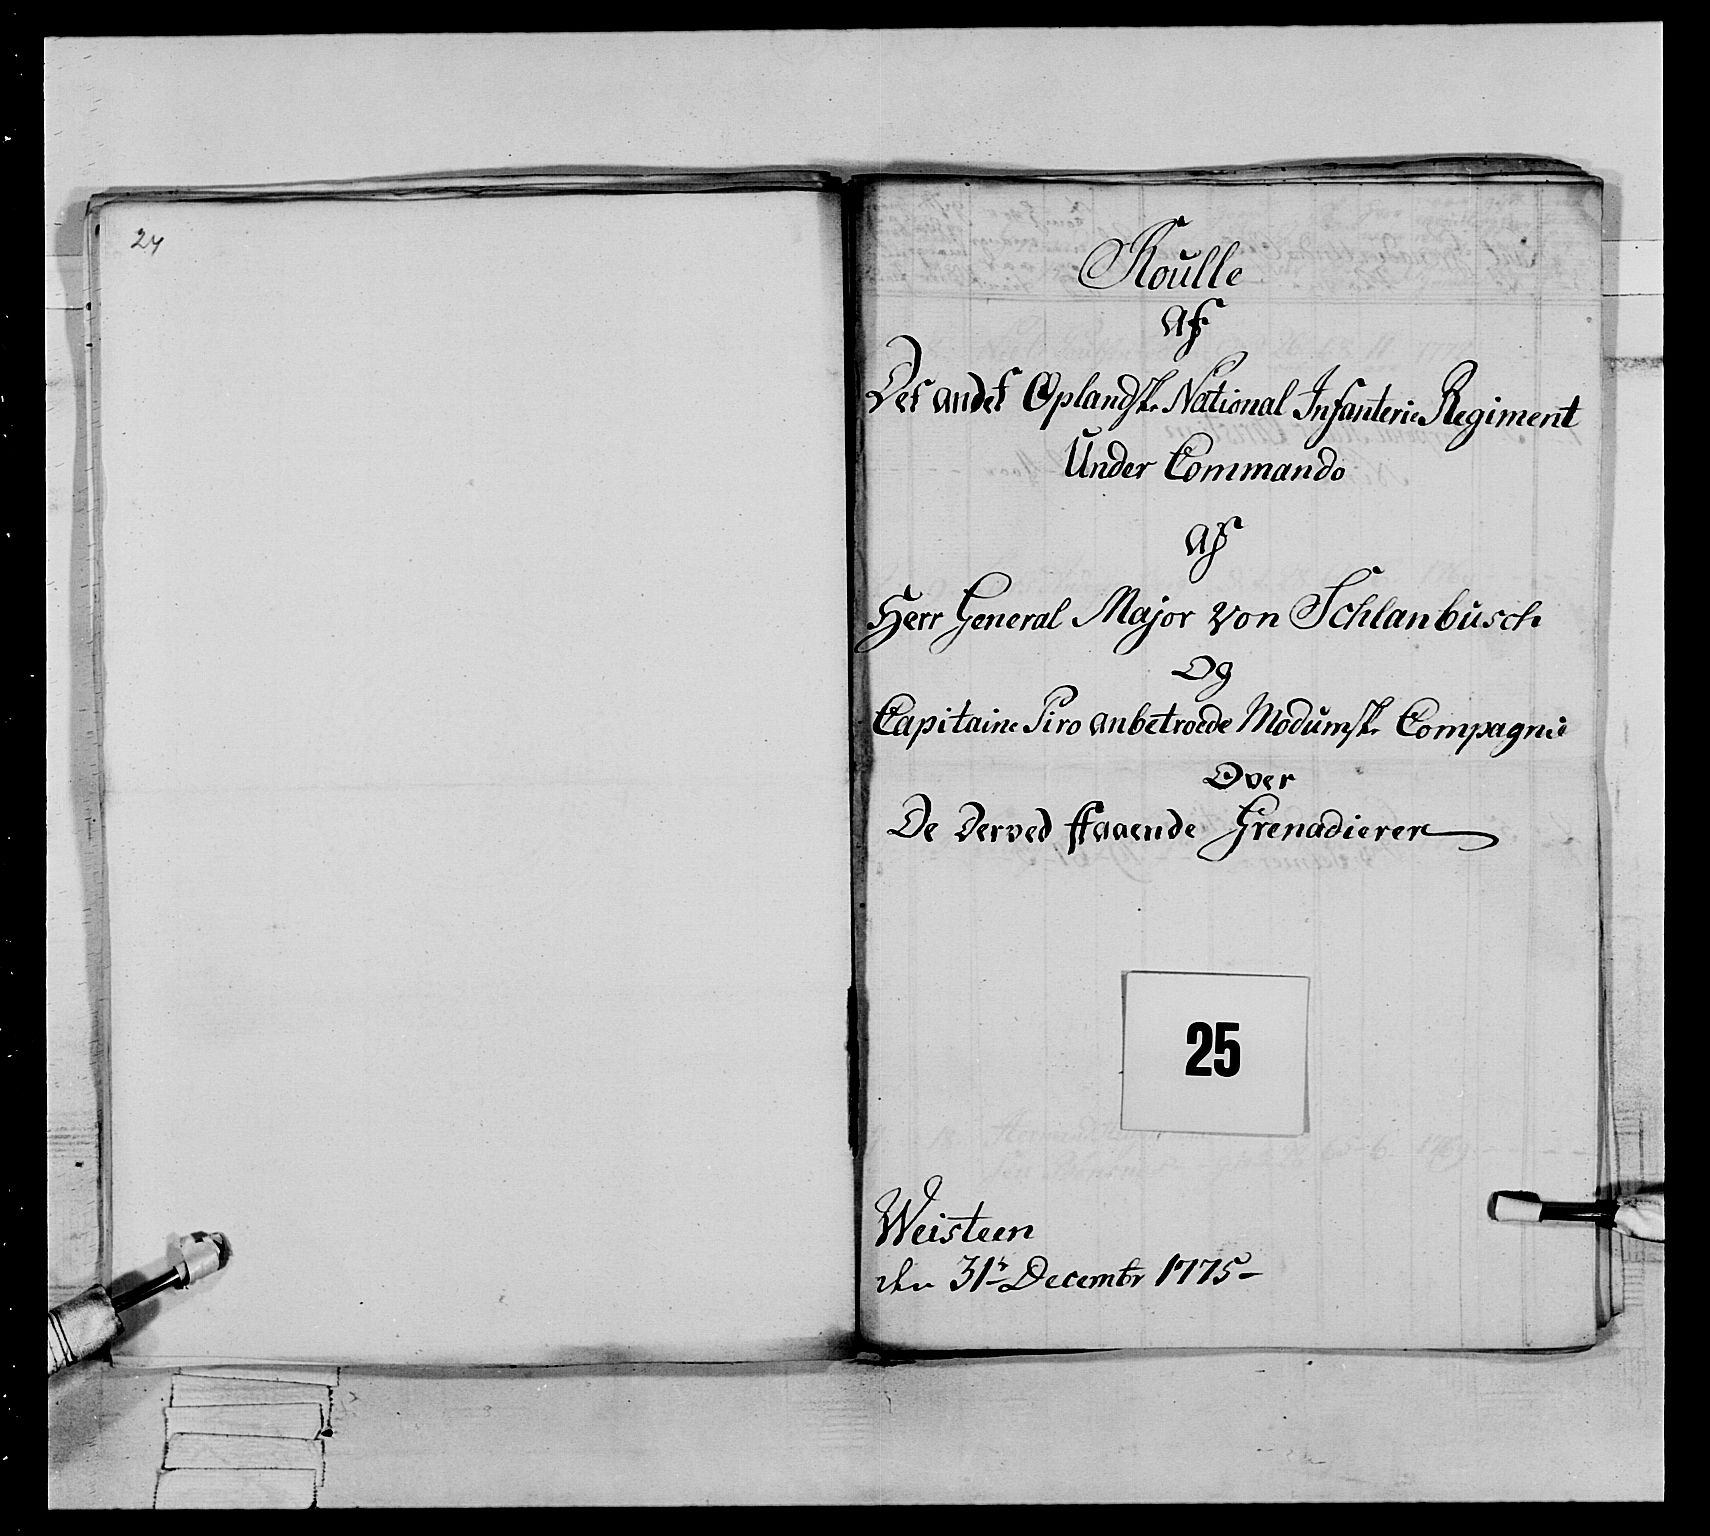 24
Roulle
af
Det andet Oplandsk. National Infanterie Regiment
Under Commando
af
Herr General Major von Schlanbusch
Og
Capitaine Piro anbetroede Modumsk. Compagnie
Over
De derved staaende Grenadierer
25
Weisteen
den 31te Decembr 1775